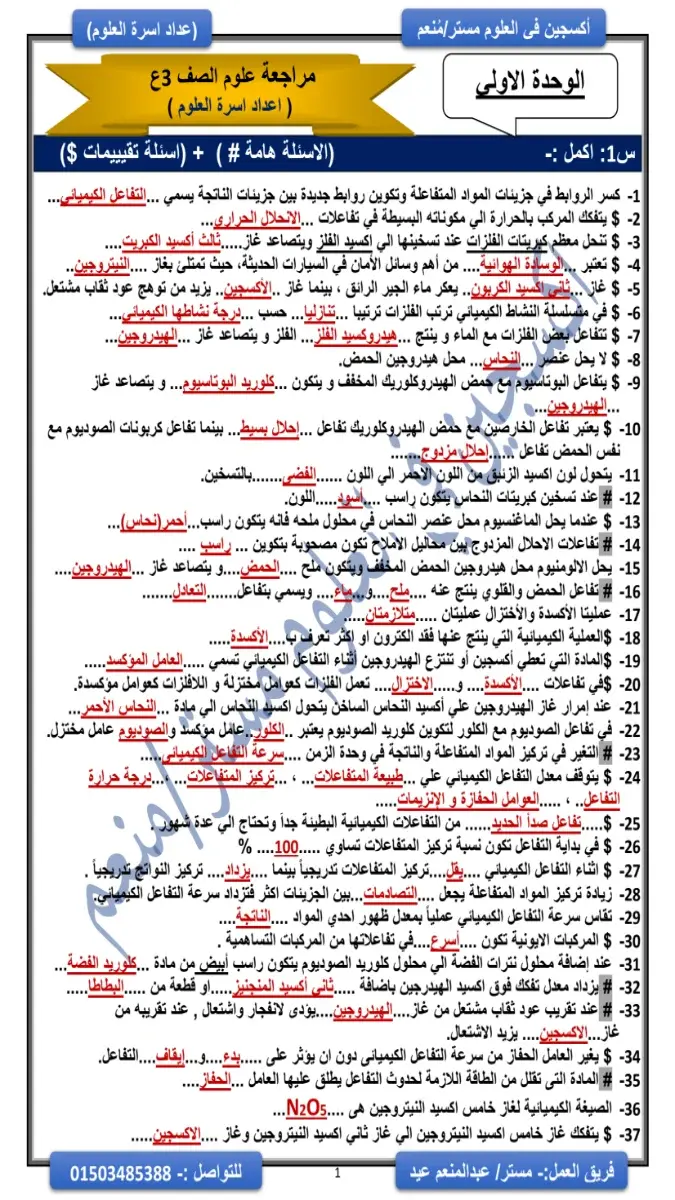 أكسجين فى العلوم مستر/مُنعم
(عداد اسرة العلوم)
الوحدة الاولي
مراجعة علوم الصف 3ع
( اعداد اسرة العلوم )
س1: اكمل :- (الاسئلة هامة # ) + (اسئلة تقيييمات $)
1- كسر الروابط في جزيئات المواد المتفاعلة وتكوين روابط جديدة بين جزيئات الناتجة يسمي ...التفاعل الكيميائي...
2- $ يتفكك المركب بالحرارة الي مكوناته البسيطة في تفاعلات ...الانحلال الحراري...
3- $ تنحل معظم كبريتات الفلزات عند تسخينها الي اكسيد الفلز ويتصاعد غاز.....ثالث أكسيد الكبريت....
4- $ تعتبر ...الوسادة الهوائية.... من أهم وسائل الأمان في السيارات الحديثة، حيث تمتلئ بغاز ....النيتروجين..
5- $ غاز ...ثاني اكسيد الكربون.. يعكر ماء الجير الرائق ، بينما غاز ..الأكسجين.. يزيد من توهج عود ثقاب مشتعل.
6- $ في متسلسلة النشاط الكيميائي ترتب الفلزات ترتيبا ...تنازليا.... حسب ...درجة نشاطها الكيميائي...
7- $ تتفاعل بعض الفلزات مع الماء و ينتج ...هيدروكسيد الفلز... الفلز و يتصاعد غاز ...الهيدروجين...
8- $ لا يحل عنصر ...النحاس... محل هيدروجين الحمض.
9- $ يتفاعل البوتاسيوم مع حمض الهيدروكلوريك المخفف و يتكون ...كلوريد البوتاسيوم... و يتصاعد غاز
...الهيدروجين...
10- $ يعتبر تفاعل الخارصين مع حمض الهيدروكلوريك تفاعل ...إحلال بسيط... بينما تفاعل كربونات الصوديوم مع
نفس الحمض تفاعل ......إحلال مزدوج.......
11- يتحول لون اكسيد الزئبق من اللون الاحمر الي اللون ......الفضي.......بالتسخين.
12- # عند تسخين كبريتات النحاس يتكون راسب ....اسود.....اللون.
13- $ عندما يحل الماغنسيوم محل عنصر النحاس في محلول ملحه فانه يتكون راسب...أحمر(نحاس)...
14- # تفاعلات الاحلال المزدوج بين محاليل الاملاح تكون مصحوبة بتكوين ... راسب ....
15- يحل الالومنيوم محل هيدروجين الحمض المخفف ويتكون ملح ....الحمض....و يتصاعد غاز ...الهيدروجين....
16- # تفاعل الحمض والقلوي ينتج عنه ....ملح....و...ماء.... ويسمي بتفاعل.......التعادل.......
17- عمليتا الأكسدة والأختزال عمليتان .....متلازمتان.....
18- $العملية الكيميائية التي ينتج عنها فقد الكترون او اكثر تعرف ب....الأكسدة.....
19- $المادة التي تعطي أكسجين أو تنتزع الهيدروجين أثناء التفاعل الكيميائي تسمي .....العامل المؤكسد.....
20- $في تفاعلات ....الأكسدة.... و.....الاختزال.... تعمل الفلزات كعوامل مختزلة و اللافلزات كعوامل مؤكسدة.
21- عند إمرار غاز الهيدروجين علي أكسيد النحاس الساخن يتحول اكسيد النحاس الي مادة ...النحاس الأحمر...
22- في تفاعل الصوديوم مع الكلور لتكوين كلوريد الصوديوم يعتبر ..الكلور..عامل مؤكسد والصوديوم عامل مختزل.
23- # التغير في تركيز المواد المتفاعلة والناتجة في وحدة الزمن ....سرعة التفاعل الكيميائي.....
24- $ يتوقف معدل التفاعل الكيميائي علي ...طبيعة المتفاعلات... ، ...تركيز المتفاعلات... ،...درجة حرارة
التفاعل.. ، .....العوامل الحفازة و الإنزيمات.....
25- $.....تفاعل صدأ الحديد...... من التفاعلات الكيميائية البطيئة جداً وتحتاج الي عدة شهور .
26- $ في بداية التفاعل تكون نسبة تركيز المتفاعلات تساوي .....100.... %
27- $ اثناء التفاعل الكيميائي ....يقل....تركيز المتفاعلات تدريجياً بينما ....يزداد.... تركيز النواتج تدريجياً .
28- زيادة تركيز المواد المتفاعلة يجعل ....التصادمات...بين الجزيئات اكثر فتزداد سرعة التفاعل الكيميائي.
29- تقاس سرعة التفاعل الكيميائي عملياً بمعدل ظهور احدي المواد ....الناتجة....
30- $ المركبات الايونية تكون ....أسرع....في تفاعلاتها من المركبات التساهمية .
31- عند إضافة محلول نترات الفضة الي محلول كلوريد الصوديوم يتكون راسب أبيض من مادة ...كلوريد الفضة...
32- # يزداد معدل تفكك فوق اكسيد الهيدرجين باضافة .....ثاني أكسيد المنجنيز.....او قطعة من .....البطاطا.....
33- # عند تقريب عود ثقاب مشتعل من غاز....الهيدروجين....يؤدى لانفجار واشتعال , عند تقريبه من
غاز...الاكسجين.... يزيد الاشتعال.
34- $ يغير العامل الحفاز من سرعة التفاعل الكيميائى دون ان يؤثر على .....بدء....و...إيقاف....التفاعل.
35- # المادة التى تقلل من الطاقة اللازمة لحدوث التفاعل يطلق عليها العامل ...الحفاز....
36- الصيغة الكيميائية لغاز خامس اكسيد النيتروجين هى ....N2O5...
37- $ يتفكك غاز خامس اكسيد النيتروجين الي غاز ثاني اكسيد النيتروجين وغاز ....الاكسجين.....
اكسجين في العلوم مستر/منعم
فريق العمل:- مستر/ عبدالمنعم عيد
1
للتواصل :- 01503485388